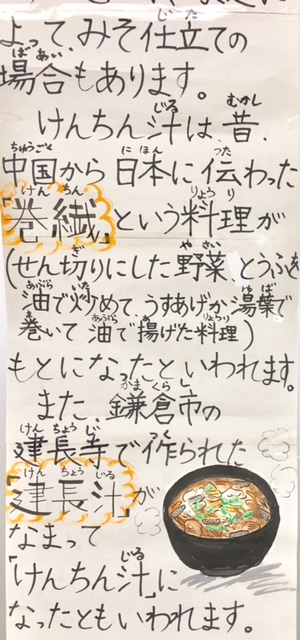 よって、みそ仕立ての
場合もあります。
けんちん汁は、昔、
中国から日本に伝わった
「巻繊」という料理が
(せん切りにした野菜とうふを
油で炒めて、うすあげか湯葉で
巻いて油で揚げた料理)
もとになったといわれます。
また、鎌倉市の
建長寺で作られた
「建長汁」が
なまって
「けんちん汁」に
なったともいわれます。